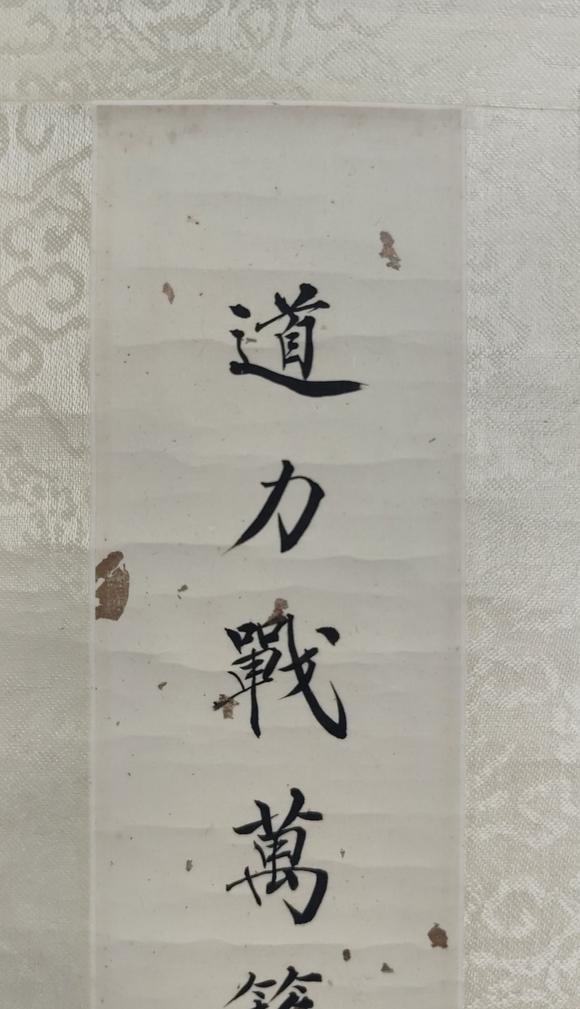 道力戰萬